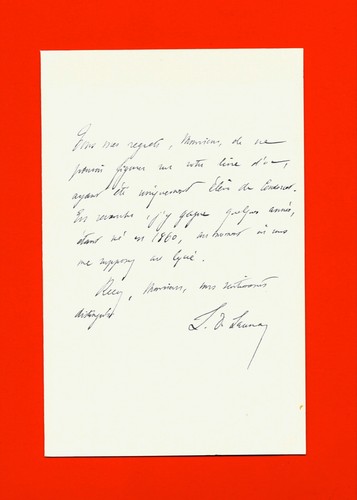 Tous mes regrets, Monsieur, de ne
pouvoir figurer sur votre livre d'or,
ayant été uniquement Elève de Condorcet.
En revanche, j'y gagne quelques années,
étant né en 1860, au moment où vous
me supposez au lycée.
Recevez, Monsieur, mes sentiments
distingués
L. De Launay